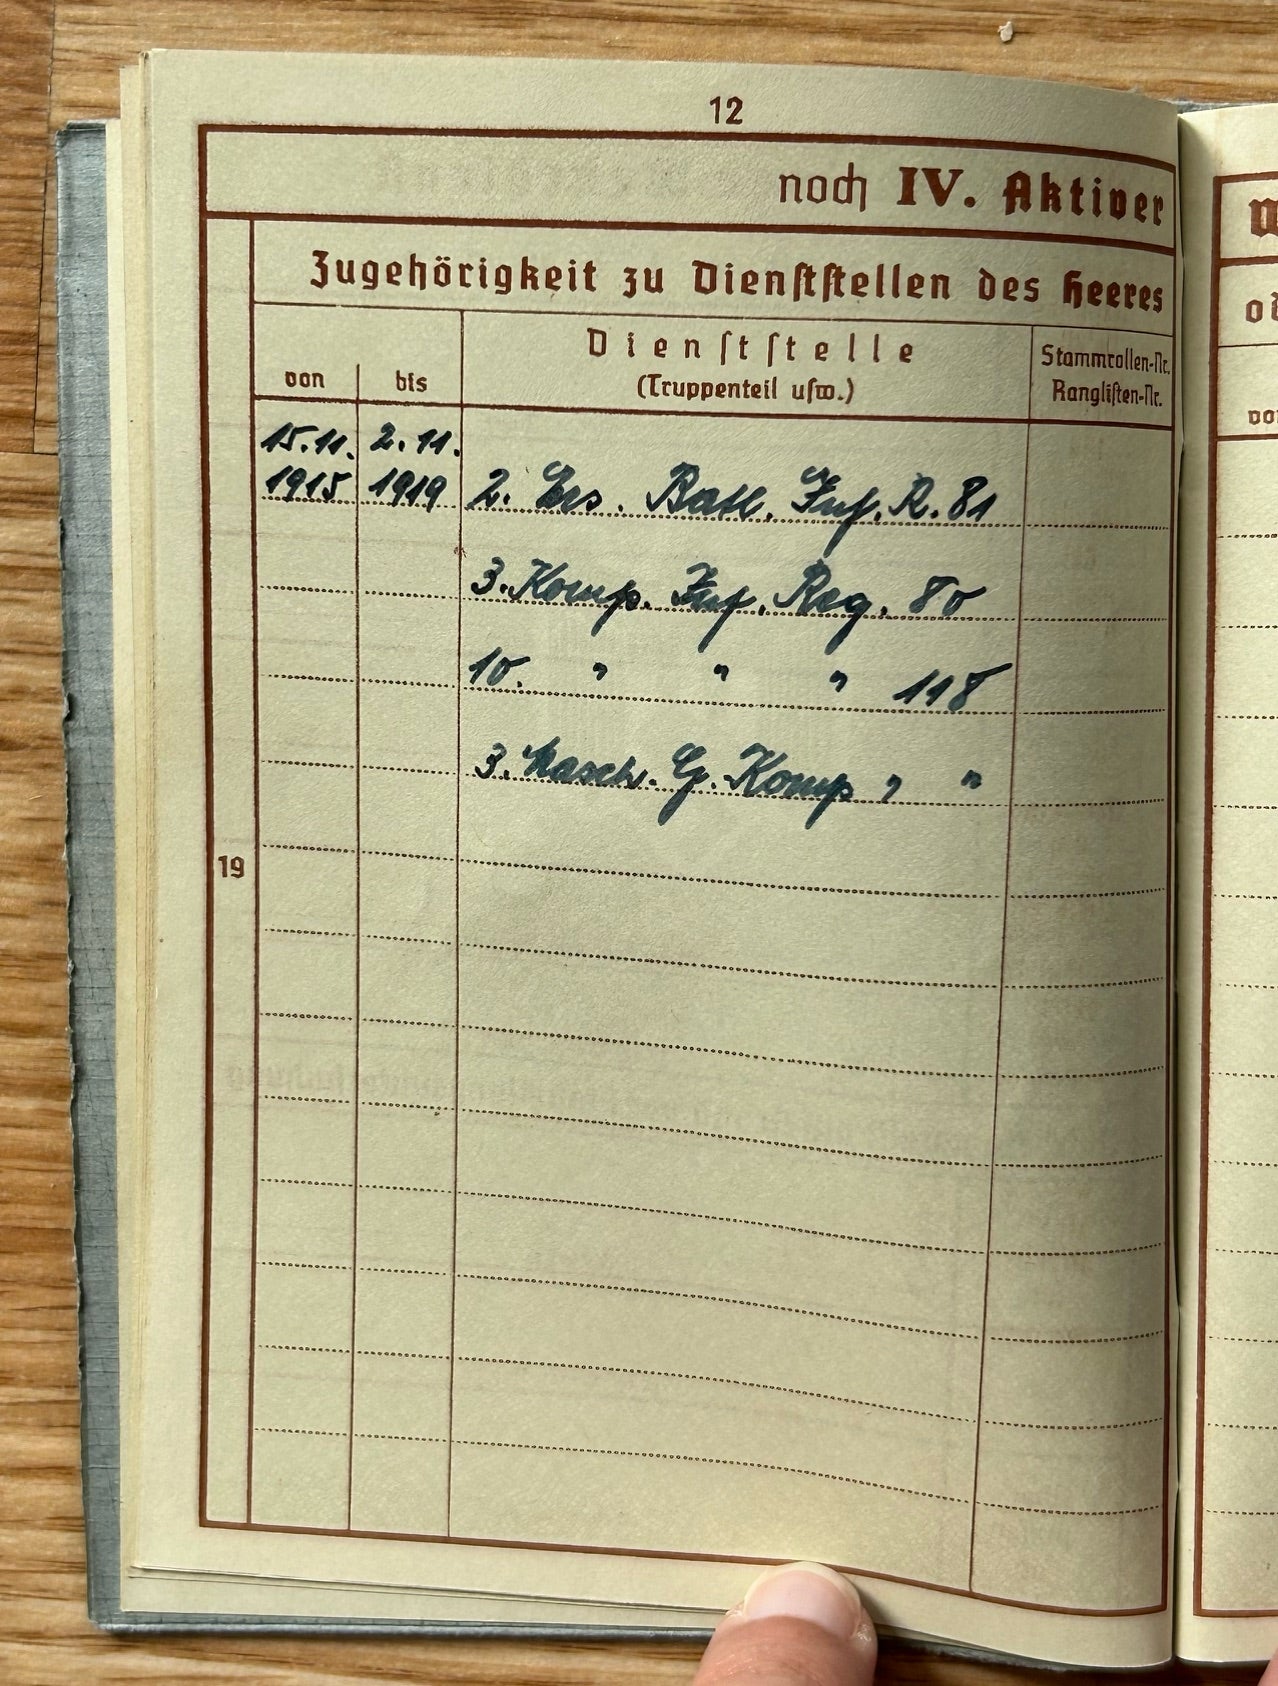 12
noch IV. Aktiver
Zugehörigkeit zu Dienststellen des Heeres
von
bis
Dienststelle
(Truppenteil usw.)
Stammrollen-Nr.
Ranglisten-Nr.
15.11.
1915
2.11.
1919
2. Ers. Batl. Inf. R. 81
3. Komp. Inf. Reg. 80
10. " " " 118
3. Masch. G. Komp " "
19